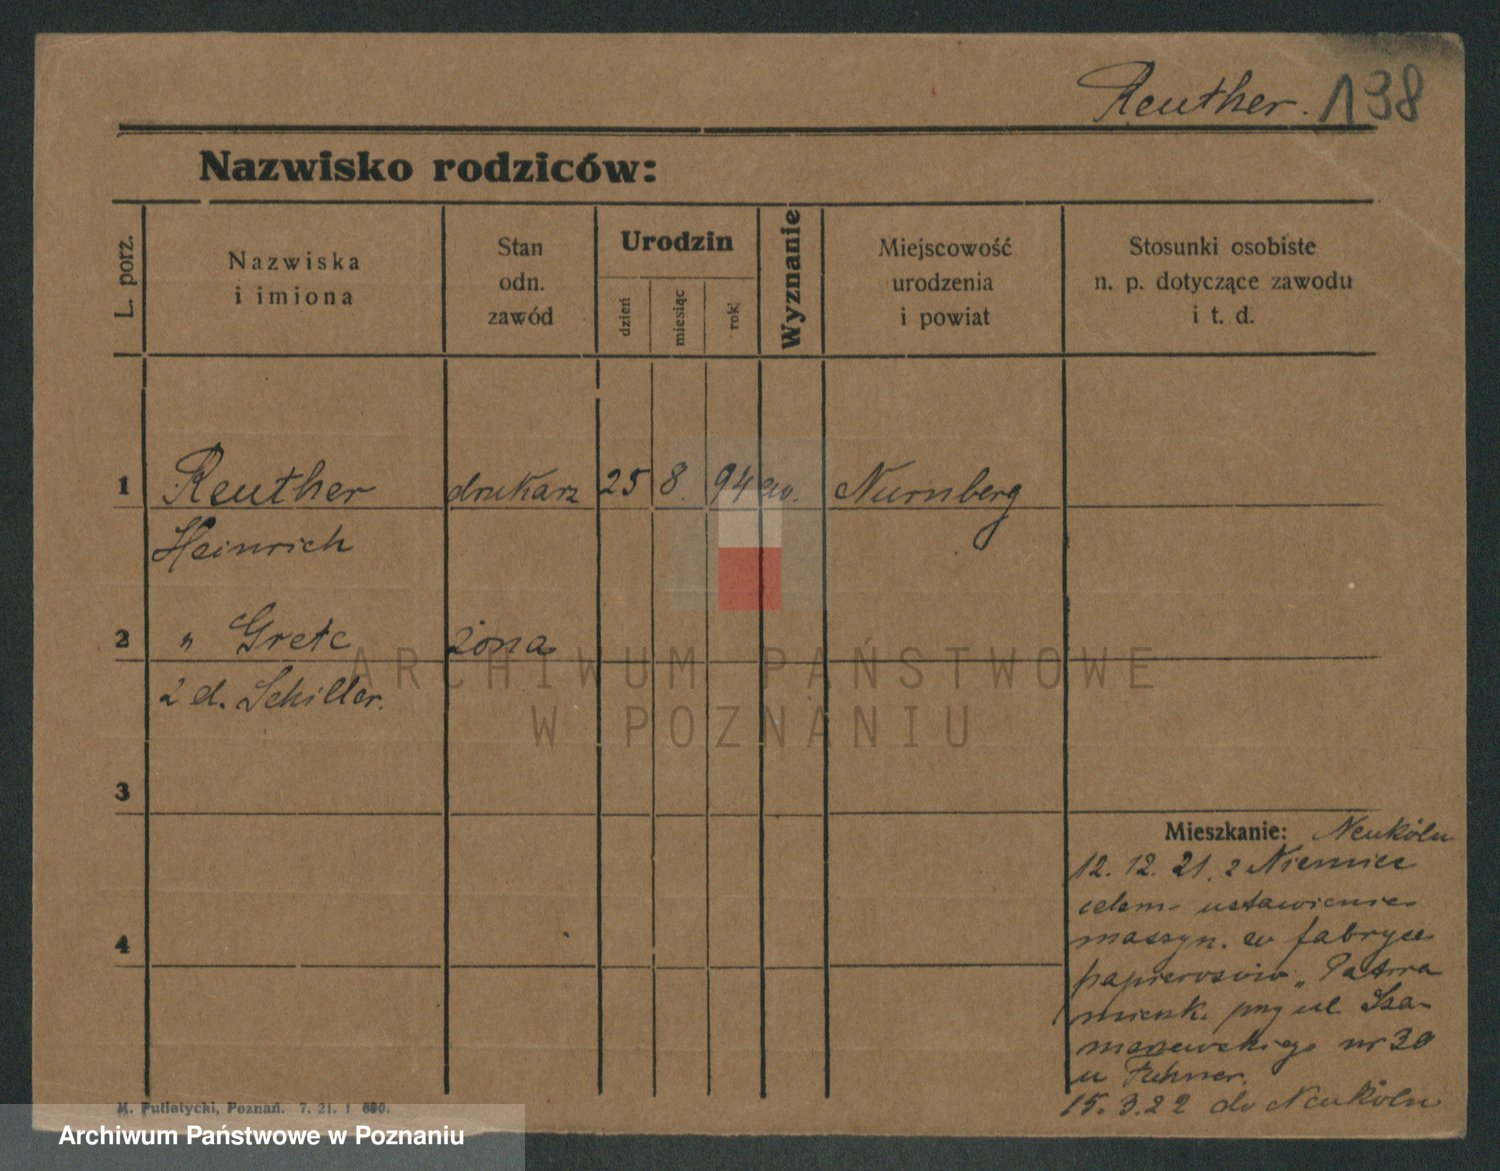 Reuther. 138
Nazwisko rodziców:
L. porz.
Nazwiska
i imiona
Stan
odn.
zawód
Urodzin
dzień
miesiąc
rok
Wyznanie
Miejscowość
urodzenia
i powiat
Stosunki osobiste
n. p. dotyczące zawodu
i t. d.
1 Reuther drukarz 25 8. 94 ew. Nurnberg
Heinrich
2 " Grete żona
z d. Schiller.
ARCHIWUM PAŃSTWOWE
W POZNANIU
3
Mieszkanie: Neukoln
12. 12. 21. z Niemiec
celem ustawienie
maszyn. w fabryce
papierosów „Patrra
mieszk. przy ul. Sza-
marzewskiego nr 30
u
15. 3. 22 do Neuköln
4
M. Putiatycki, Poznań. 7. 21. 1
Archiwum Państwowe w Poznaniu